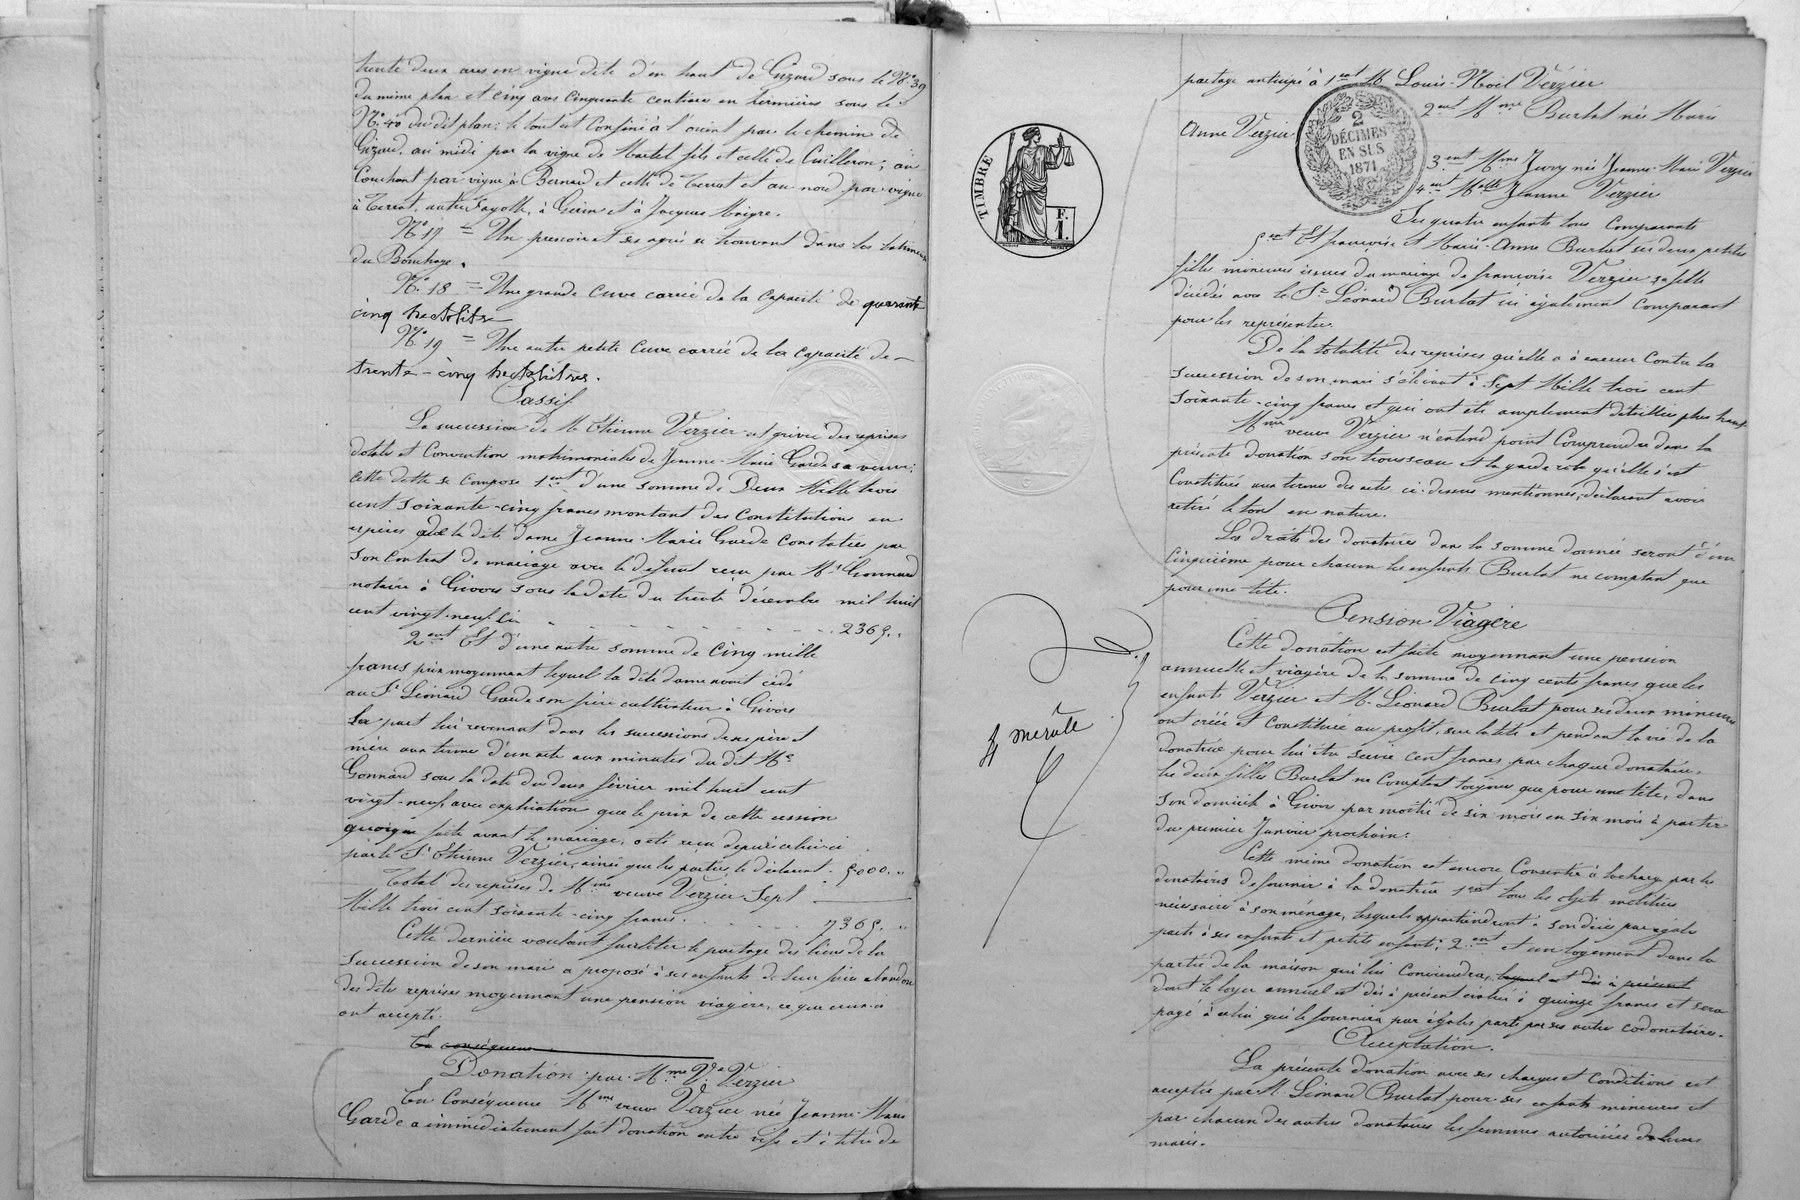 trente deux ares en vigne dite d'en haut de Gizard sous le N° 39
du même plan et cinq ares cinquante centiares en hermières sous le
N° 40 du dit plan; le tout est confiné à l'orient par le chemin de
Gizard, au midi par la vigne de Martel fils et celle de Cuilleron; au
Couchant par vigne à Bernard et celle de Terrat et au nord par vigne
à Terrat, autre Fayolle, à Girin et à Jacques Maigre.
N° 17 = Un pressoir et ses agrès se trouvant dans les batiments
du Bombage.
N° 18 = Une grande Cuve carrée de la Capacité de quarante
cinq hectolitre
N° 19 = Une autre petite Cuve carrée de la capacité de
trente-cinq hectolitres.
Passif
La succession de M. Etienne Verzier est grévée des reprises
dotales et Convention matrimoniales de Jeanne-Marie Garde sa veuve;
cette dette se compose 1ent d'une somme de Deux Mille trois
cent soixante-cinq francs montant des Constitutions en
espèces de la dite dame Jeanne-Marie Garde Constatées par
son Contrat de mariage avec le défunt reçu par Me Gonnard
notaire à Givors sous la date du trente décembre mil huit
cent vingt-neuf, ci 2365.
2ent Et d'une autre somme de Cinq mille
francs prix moyennant lequel la dite dame avait cédé
au Sr Léonard Garde son frère cultivateur à Givors
La part lui revenant dans les successions de ses père et
mère aux termes d'un acte aux minutes du dit Me
Gonnard sous la date du deux février mil huit cent
vingt-neuf, avec explication que le prix de cette cession
quoique faite avant le mariage, a été reçu depuis celui-ci
par le Sr Etienne Verzier, ainsi que les parties le déclarent. 5000.
Total des reprises de Mme veuve Verzier Sept
Mille trois cent soixante-cinq francs. 7365.
Cette dernière voulant faciliter le partage des biens de la
succession de son mari a proposé à ses enfants de leur faire abandon
des dites reprises moyennant une pension viagère, ce que ceux-ci
ont accepté.
En conséquence
Donation par Mme Ve Verzier
En Conséquence Mme veuve Verzier née Jeanne-Marie
Garde a immédiatement fait donation entre vifs et à titre de
partage anticipé à 1ent M. Louis-Noël Verzier
2ent Mme Burlat née Marie
Anne Verzier
3ent Mme Jury née Jeanne-Marie Verzier
4ent Melle Jeanne Verzier
Ses quatre enfants tous Comparants
5ent Et françoise et Marie-Anne Burlat ses deux petites
filles mineures issues du mariage de françoise Verzier sa fille
décédée avec le Sr Léonard Burlat ici également Comparant
pour les représenter.
De la totalité des reprises qu'elle a à exercer Contre la
succession de son mari s'élevant à Sept Mille trois cent
soixante-cinq francs et qui ont été amplement détaillées plus haut.
Mme veuve Verzier n'entend point Comprendre dans la
présente donation son trousseau et la garde robe qu'elle s'est
Constitués aux termes des actes ci-dessus mentionnés, déclarant avoir
retiré le tout en nature.
Les droits des donataires dans la somme donnée seront d'un
Cinquième pour chacun les enfants Burlat ne comptant que
pour une tête.
Pension Viagère
Cette donation est faite moyennant une pension
annuelle et viagère de la somme de cinq cents francs que les
enfants Verzier et M. Léonard Burlat pour ses deux mineures
ont créée et Constituée au profit, sur la tête et pendant la vie de la
donatrice pour lui être servie Cent francs par chaque donataire,
les deux filles Burlat ne Comptant toujours que pour une tête, dans
son domicile à Givors par moitié de six mois en six mois à partir
du premier Janvier prochain.
Cette même donation est encore Consentie à la charge par les
donataires de fournir à la donatrice 1ent tous les objets mobiliers
nécessaire à son ménage, lesquels appartiendront à son décès par égales
parts à ses enfants et petits enfants; 2ent et un logement dans la
partie de la maison qui lui Conviendra, lequel est dès à présent
dont le loyer annuel est dès à présent évalué à quinze francs et sera
payé à celui qui le fournira par égales parts par ses autres codonataires.
Acceptation.
La présente donation avec ses charges et Conditions est
acceptée par M. Léonard Burlat pour ses enfants mineures et
par chacun des autres donataires les femmes autorisées de leurs
maris.
TIMBRE
F.
1.
2
DÉCIMES
EN SUS
1871